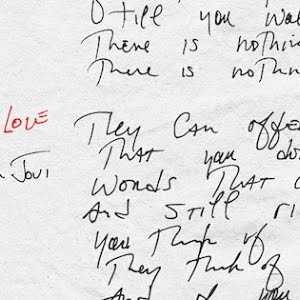 Still you wa
There is nothin
There is nothin
LOVE
They can offe
Jovi
That you do
words that
And still
you think of
They think of
And you